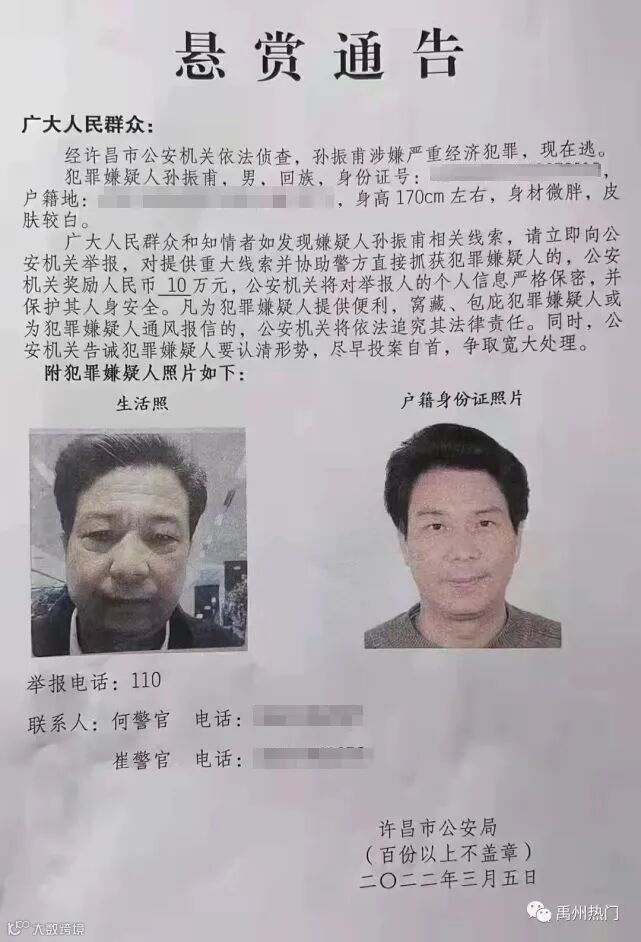 悬赏通告
广大人民群众：
经许昌市公安机关依法侦查，孙振甫涉嫌严重经济犯罪，现在逃。
犯罪嫌疑人孙振甫，男，回族，身份证号：
户籍地：，身高170cm左右，身材微胖，皮
肤较白。
广大人民群众和知情者如发现嫌疑人孙振甫相关线索，请立即向公
安机关举报，对提供重大线索并协助警方直接抓获犯罪嫌疑人的，公安
机关奖励人民币 10 万元，公安机关将对举报人的个人信息严格保密，并
保护其人身安全。凡为犯罪嫌疑人提供便利，窝藏、包庇犯罪嫌疑人或
为犯罪嫌疑人通风报信的，公安机关将依法追究其法律责任。同时，公
安机关告诫犯罪嫌疑人要认清形势，尽早投案自首，争取宽大处理。
附犯罪嫌疑人照片如下：
生活照 户籍身份证照片
举报电话：110
联系人：何警官 电话：
崔警官 电话：
许昌市公安局
（百份以上不盖章）
二〇二二年三月五日
大数跨境
禹州热门